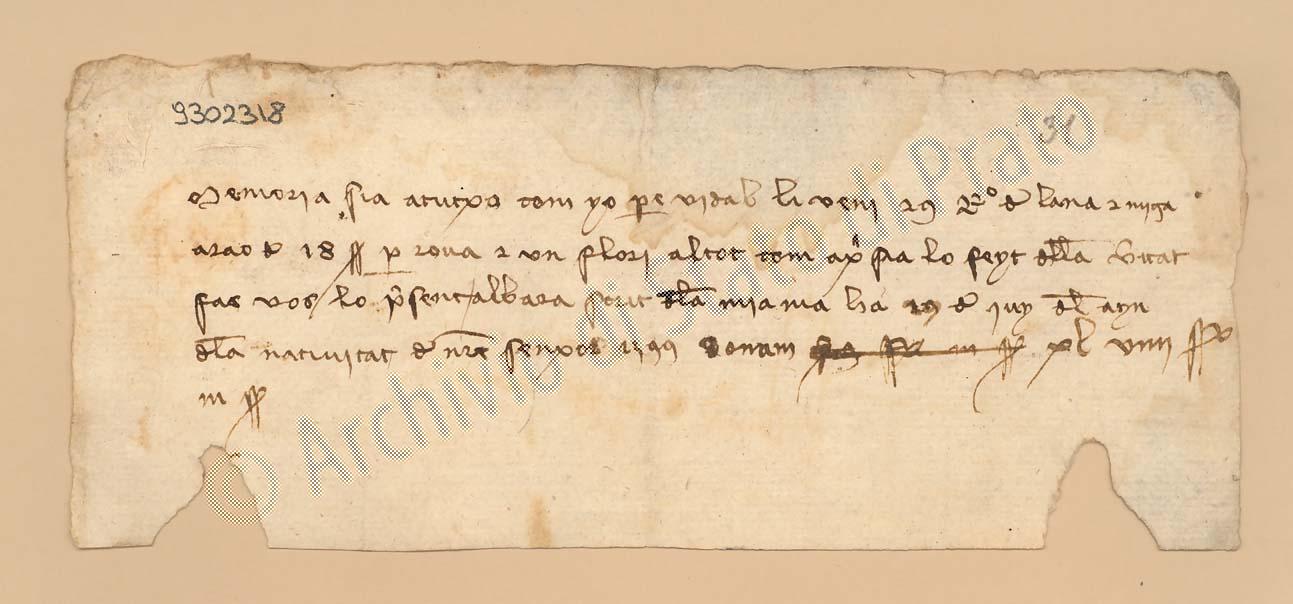 9302318
31
Memoria sia a tutxs com yo pere vidal li veni 29 Ro de lana 2 miga
a rao de 18 ss per rova 2 un flori al tot com axi sia lo feyt de la vitat
fas vos lo psent albara scrit de la mia ma ha 29 de juy del ayn
de la nativitat de nre senyor 1399 donam xl vnii ss
iii ss
© Archivio di Stato di Prato